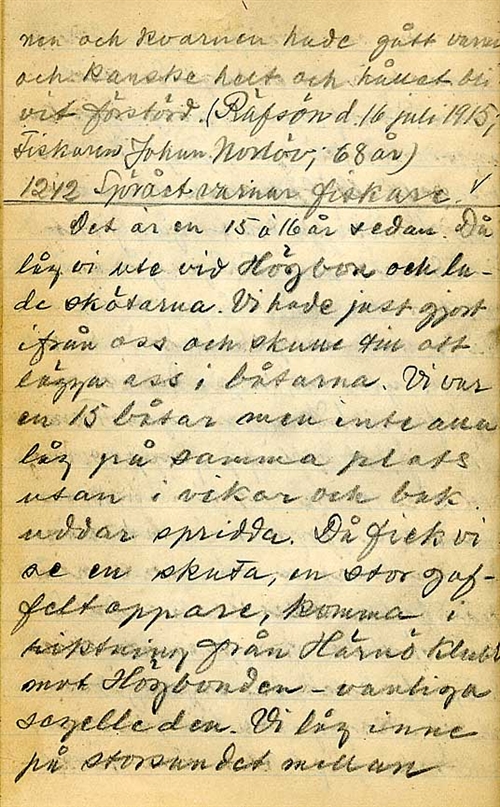 nen och kvarnen hade gått varm
och kanske helt och hållet bli
vit förstörd. (Räfsön d. 16 juli 1915,
Fiskaren Johan Norlöv, 68 år)
1242 Spöråct varnar fiskare. √
Det är en 15 à 16 år sedan. Då
låg vi ute vid Högbon och la-
de skötarna. Vi hade just gjort
ifrån oss och skulle till att
lägga oss i båtarna. Vi var
en 15 båtar men inte alla
låg på samma plats
utan i vikar och bak
uddar spridda. Då fick vi
se en skuta, en stor gaf-
feltoppare, komma i
riktning från Härnö klubb
mot Högbonden - vanliga
segelleden. Vi låg inne
på storsundet mellan